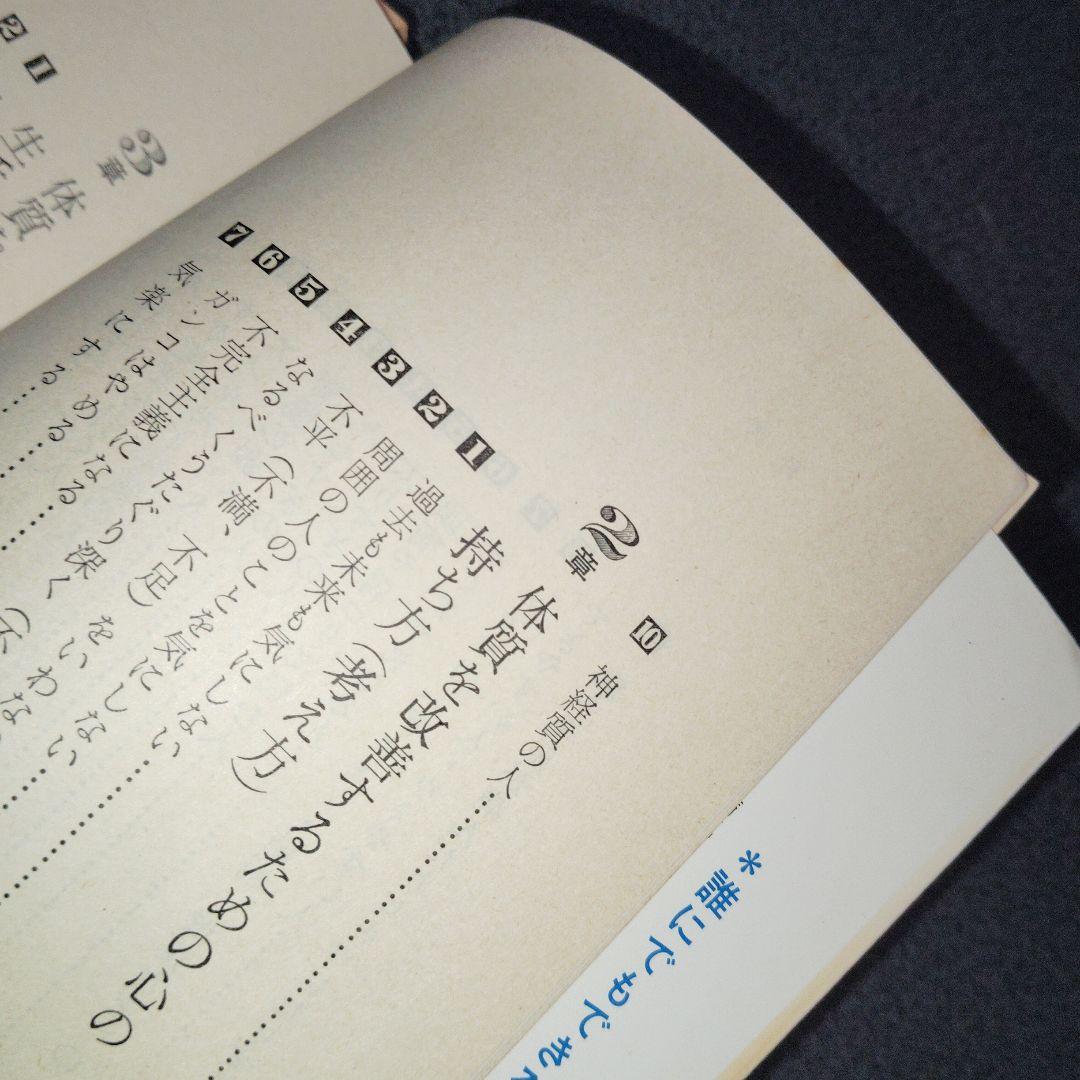 ＊誰にでもでき
10 神経質の人……………
2章 体質を改善するための心の
持ち方（考え方）
1 過去も未来も気にしない……………
2 周囲の人のことを気にしない……………
3 不平（不満、不足）をいわない……
4 なるべくうたぐり深く（不
5 不完全主義になる……………
6 ガンコはやめる……………
7 気楽にする……………
3章 体質
生
1
2